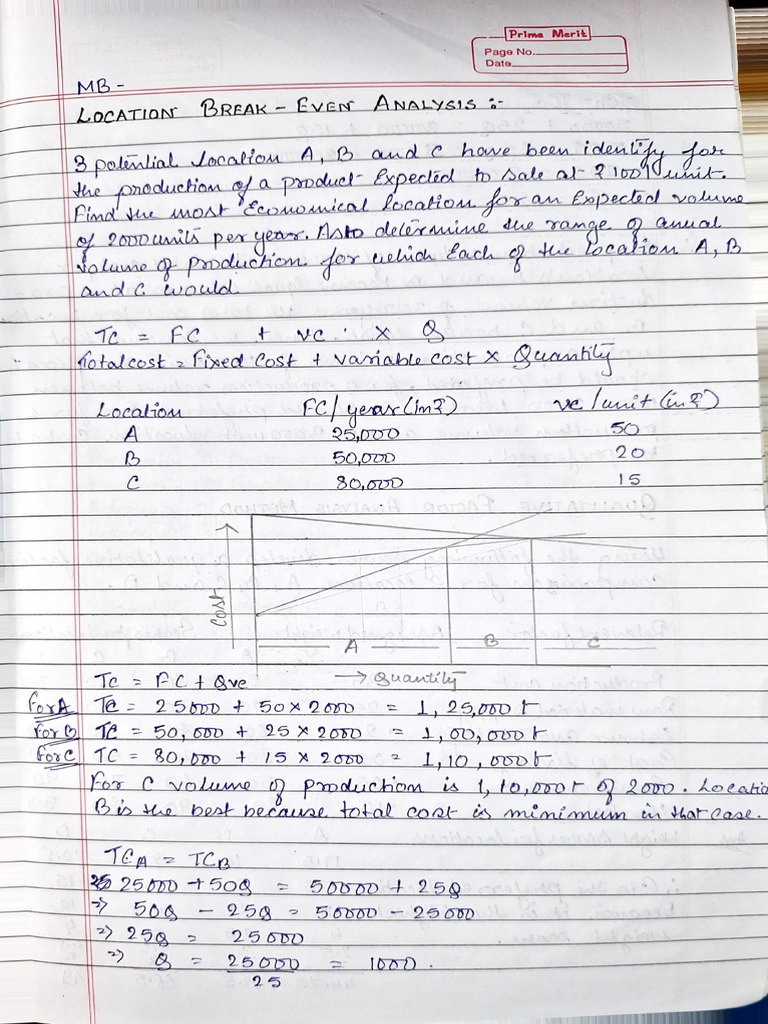 Prime Merit
Page No.
Date
MB -
LOCATION BREAK - EVEN ANALYSIS :-
3 potential location A, B and C have been identify for
the production of a product Expected to sale at ₹ 100/ unit.
Find the most Economical location for an Expected volume
of 2000 units per year. Also determine the range of anual
volume of production for which Each of the location A, B
and C would
TC = FC + VC . X Q
Total cost = Fixed Cost + variable cost × Quantity
Location FC/ year (in ₹) vc /unit (in ₹)
A 25,000 50
B 50,000 20
C 80,000 15
cost
A B C
→ Quantity
TC = FC + Qvc
For A TC = 25000 + 50 × 2000 = 1,25,000 t
For B TC = 50,000 + 25 × 2000 = 1,00,000 t
For C TC = 80,000 + 15 × 2000 = 1,10,000 t
For C volume of production is 1,10,000 t of 2000. Locatio
B is the best because total cost is minimum in that case.
TCA = TCB
25000 + 50Q = 50000 + 25Q
⇒ 50Q - 25Q = 50000 - 25000
⇒ 25Q = 25000
⇒ Q = 25000 = 1000.
25